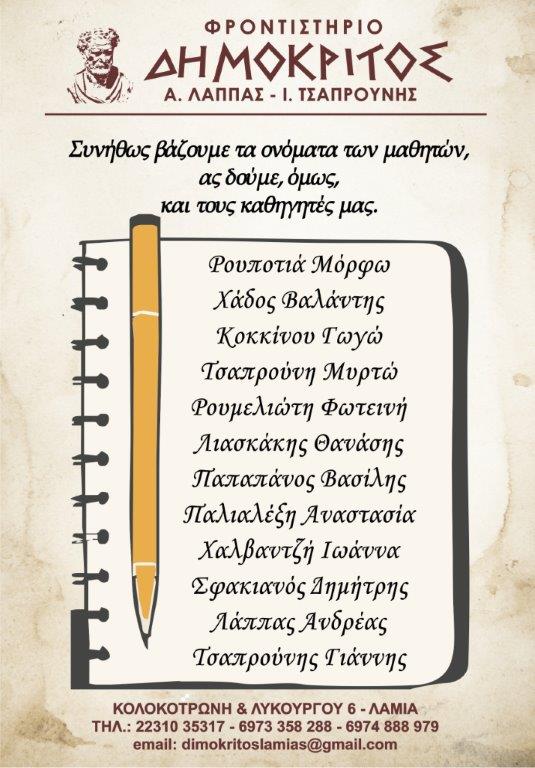 ΦΡΟΝΤΙΣΤΗΡΙΟ
ΔΗΜΟΚΡΙΤΟΣ
Α. ΛΑΠΠΑΣ - Ι. ΤΣΑΠΡΟΥΝΗΣ
Συνήθως βάζουμε τα ονόματα των μαθητών,
ας δούμε, όμως,
και τους καθηγητές μας.
Ρουποτιά Μόρφω
Χάδος Βαλάντης
Κοκκίνου Γωγώ
Τσαπρούνη Μυρτώ
Ρουμελιώτη Φωτεινή
Λιασκάκης Θανάσης
Παπαπάνος Βασίλης
Παλιαλέξη Αναστασία
Χαλβαντζή Ιωάννα
Σφακιανός Δημήτρης
Λάππας Ανδρέας
Τσαπρούνης Γιάννης
ΚΟΛΟΚΟΤΡΩΝΗ & ΛΥΚΟΥΡΓΟΥ 6 - ΛΑΜΙΑ
ΤΗΛ.: 22310 35317 - 6973 358 288 - 6974 888 979
email: dimokritoslamias@gmail.com